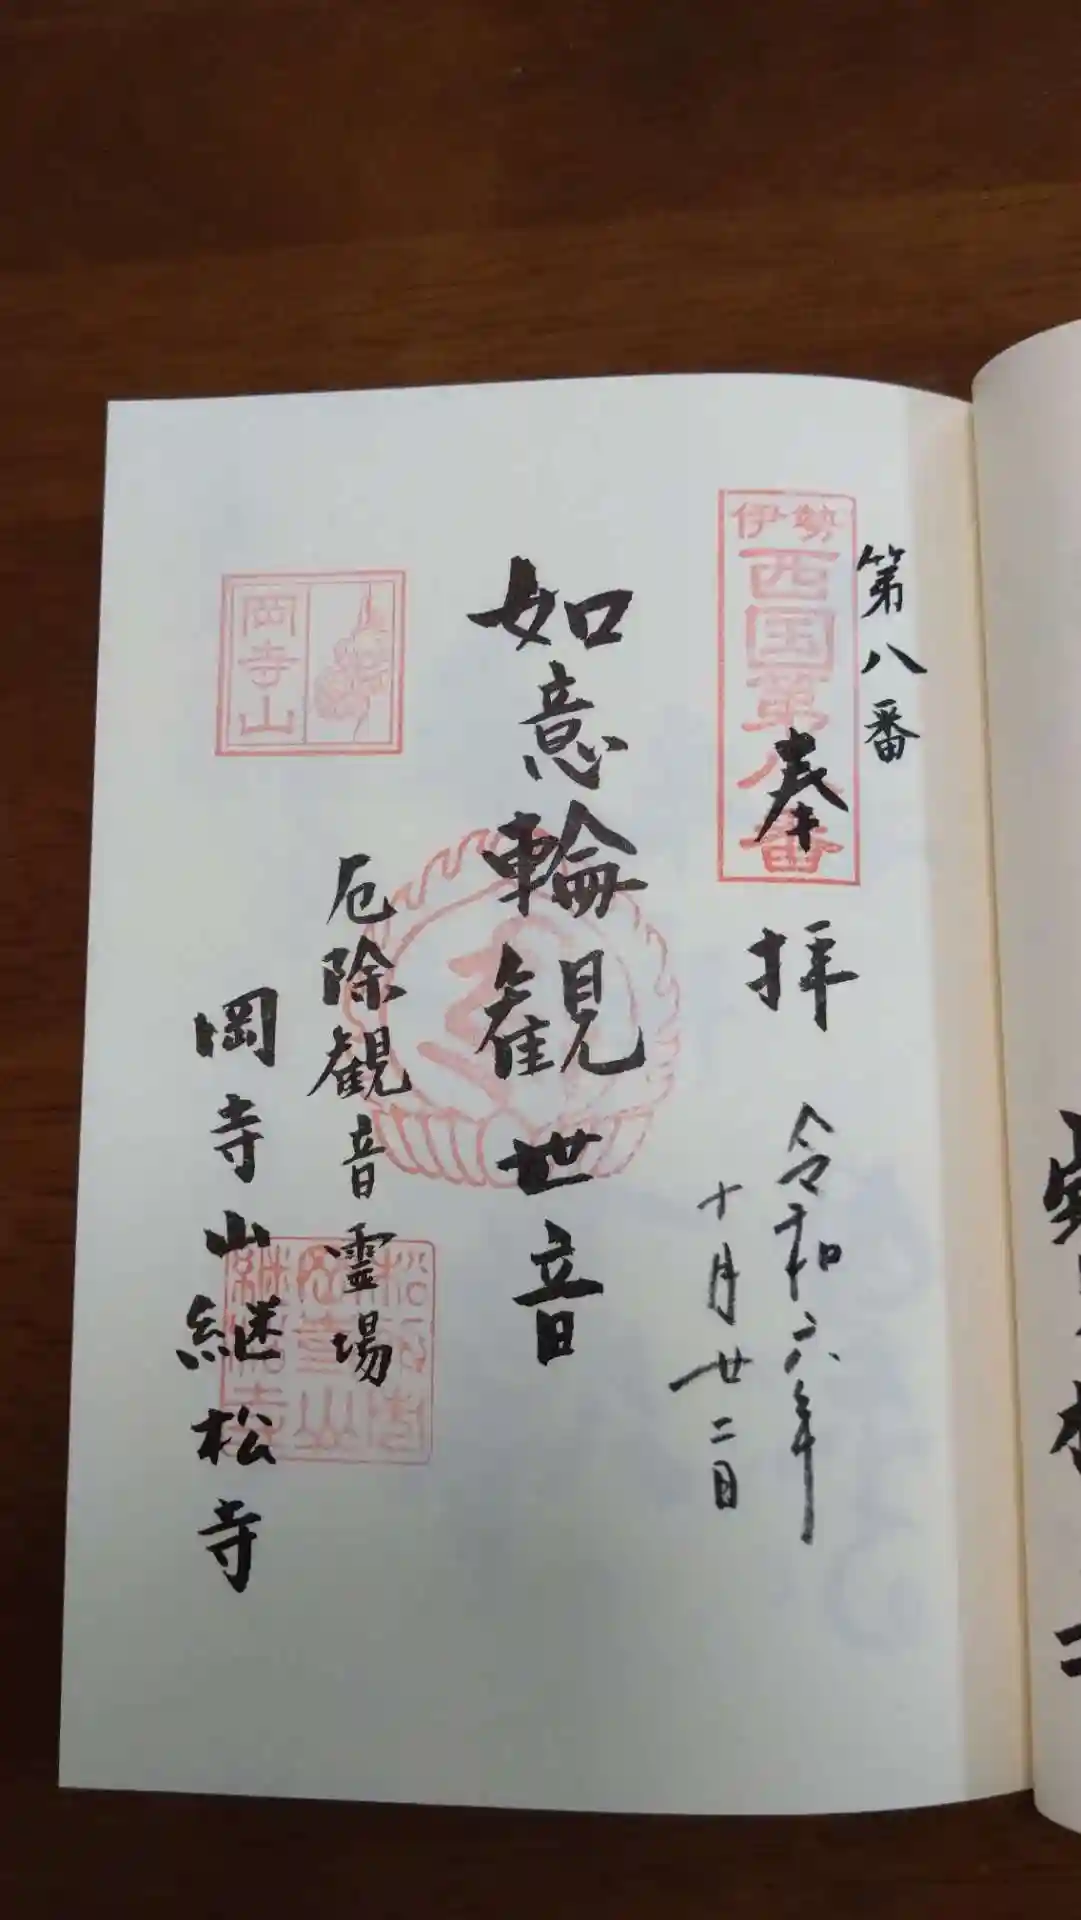 第八番
伊勢
西国第八番
奉拝
令和六年
十月廿二日
如意輪観世音
厄除観音霊場
岡寺山
岡寺山継松寺